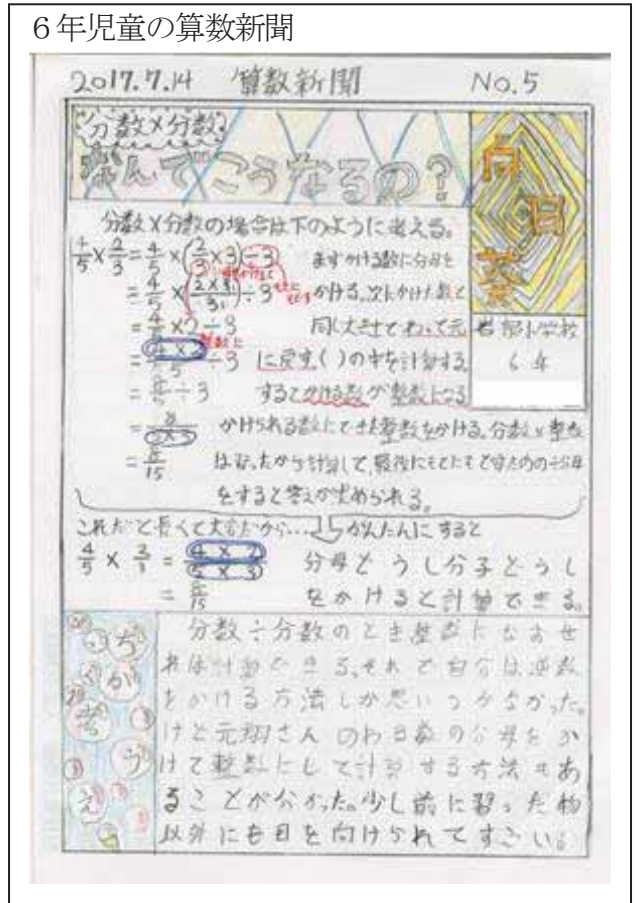 6年児童の算数新聞
2017.7.14 算数新聞 No.5
分数×分数
なんでこうなるの?
向日葵
小学校
6年
分数×分数の場合は下のように考える。
4/5×2/3=4/5×(2/3×3)÷3
まずかける数に分母を
=4/5×(2×3/3)÷3
かける。次にかけた数と
=4/5×2÷3
同じ大きさでわって元
整数に
=4×2/5÷3
に戻す。( )の中を計算する
=8/5÷3
するとかける数が整数になる
=8/5×3
かけられる数にできた整数をかける。分数×整数
=8/15
をすると答えが求められる。
これだと長くて大変だから...かんたんにすると
4/5×2/3=4×2/5×3
分母どうし分子どうし
=8/15
をかけると計算できる。
ちがう考え
分数÷分数のとき整数になおせ
れば計算できる。それで自分は逆数
をかける方法しか思いつかなかった。
けど元翔さんのわる数の分母をか
けて整数にして計算する方法もあ
ることが分かった。少し前に習った物
以外にも目を向けられてすごい。